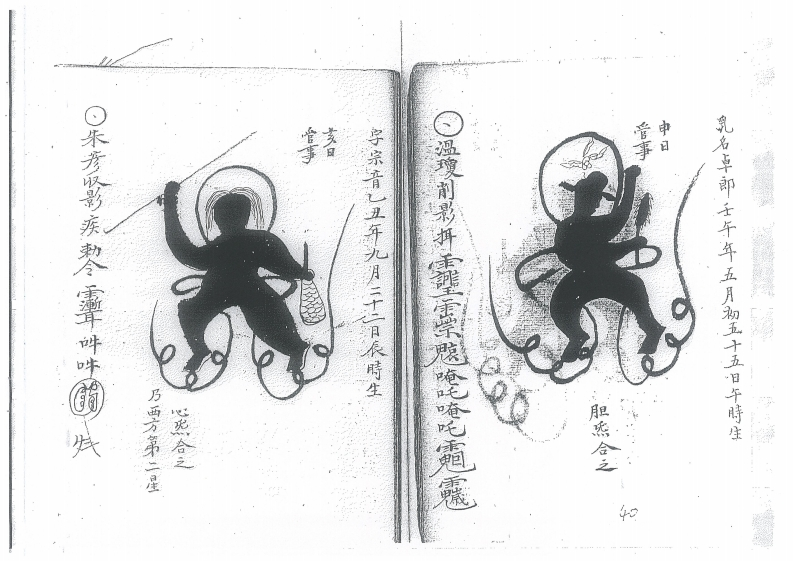 乳名卓郎壬午年五月初五十五日午時生
申日
管事
胆炁合之
溫瓊削影
唵吒唵吒
40
字宗音乙丑年九月二十二日辰時生
亥日
管事
心炁合之
乃西方第二星
朱彦収影疾勅令
吽吽